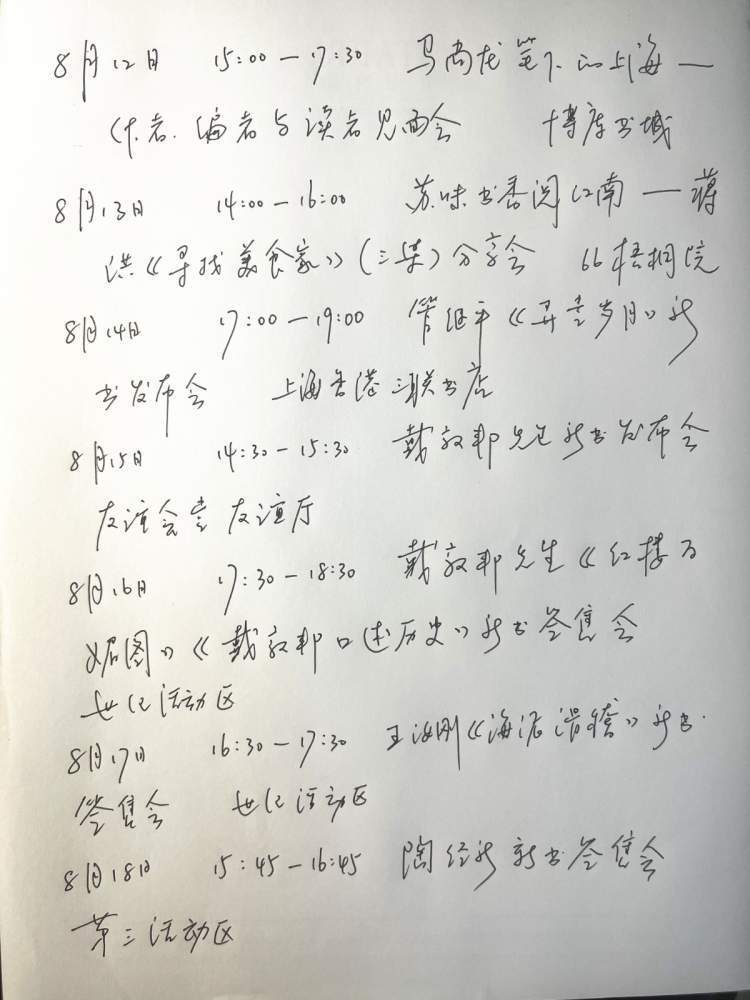 8月12日 15:00—17:30 马尚龙笔下的上海—
作者、编者与读者见面会 博库书城
8月13日 14:00—16:00 苏味书香阅江南—蒋
洪《寻找美食家》(三集)分享会 66梧桐院
8月14日 17:00—19:00 管继平《弄堂岁月》新
书发布会 上海香港三联书店
8月15日 14:30—15:30 戴敦邦先生新书发布会
友谊会堂 友谊厅
8月16日 17:30—18:30 戴敦邦先生《红楼百
媚图》《戴敦邦口述历史》新书签售会
世纪活动区
8月17日 16:30—17:30 王汝刚《海派滑稽》新书
签售会 世纪活动区
8月18日 15:45—16:45 陶经新新书签售会
第三活动区